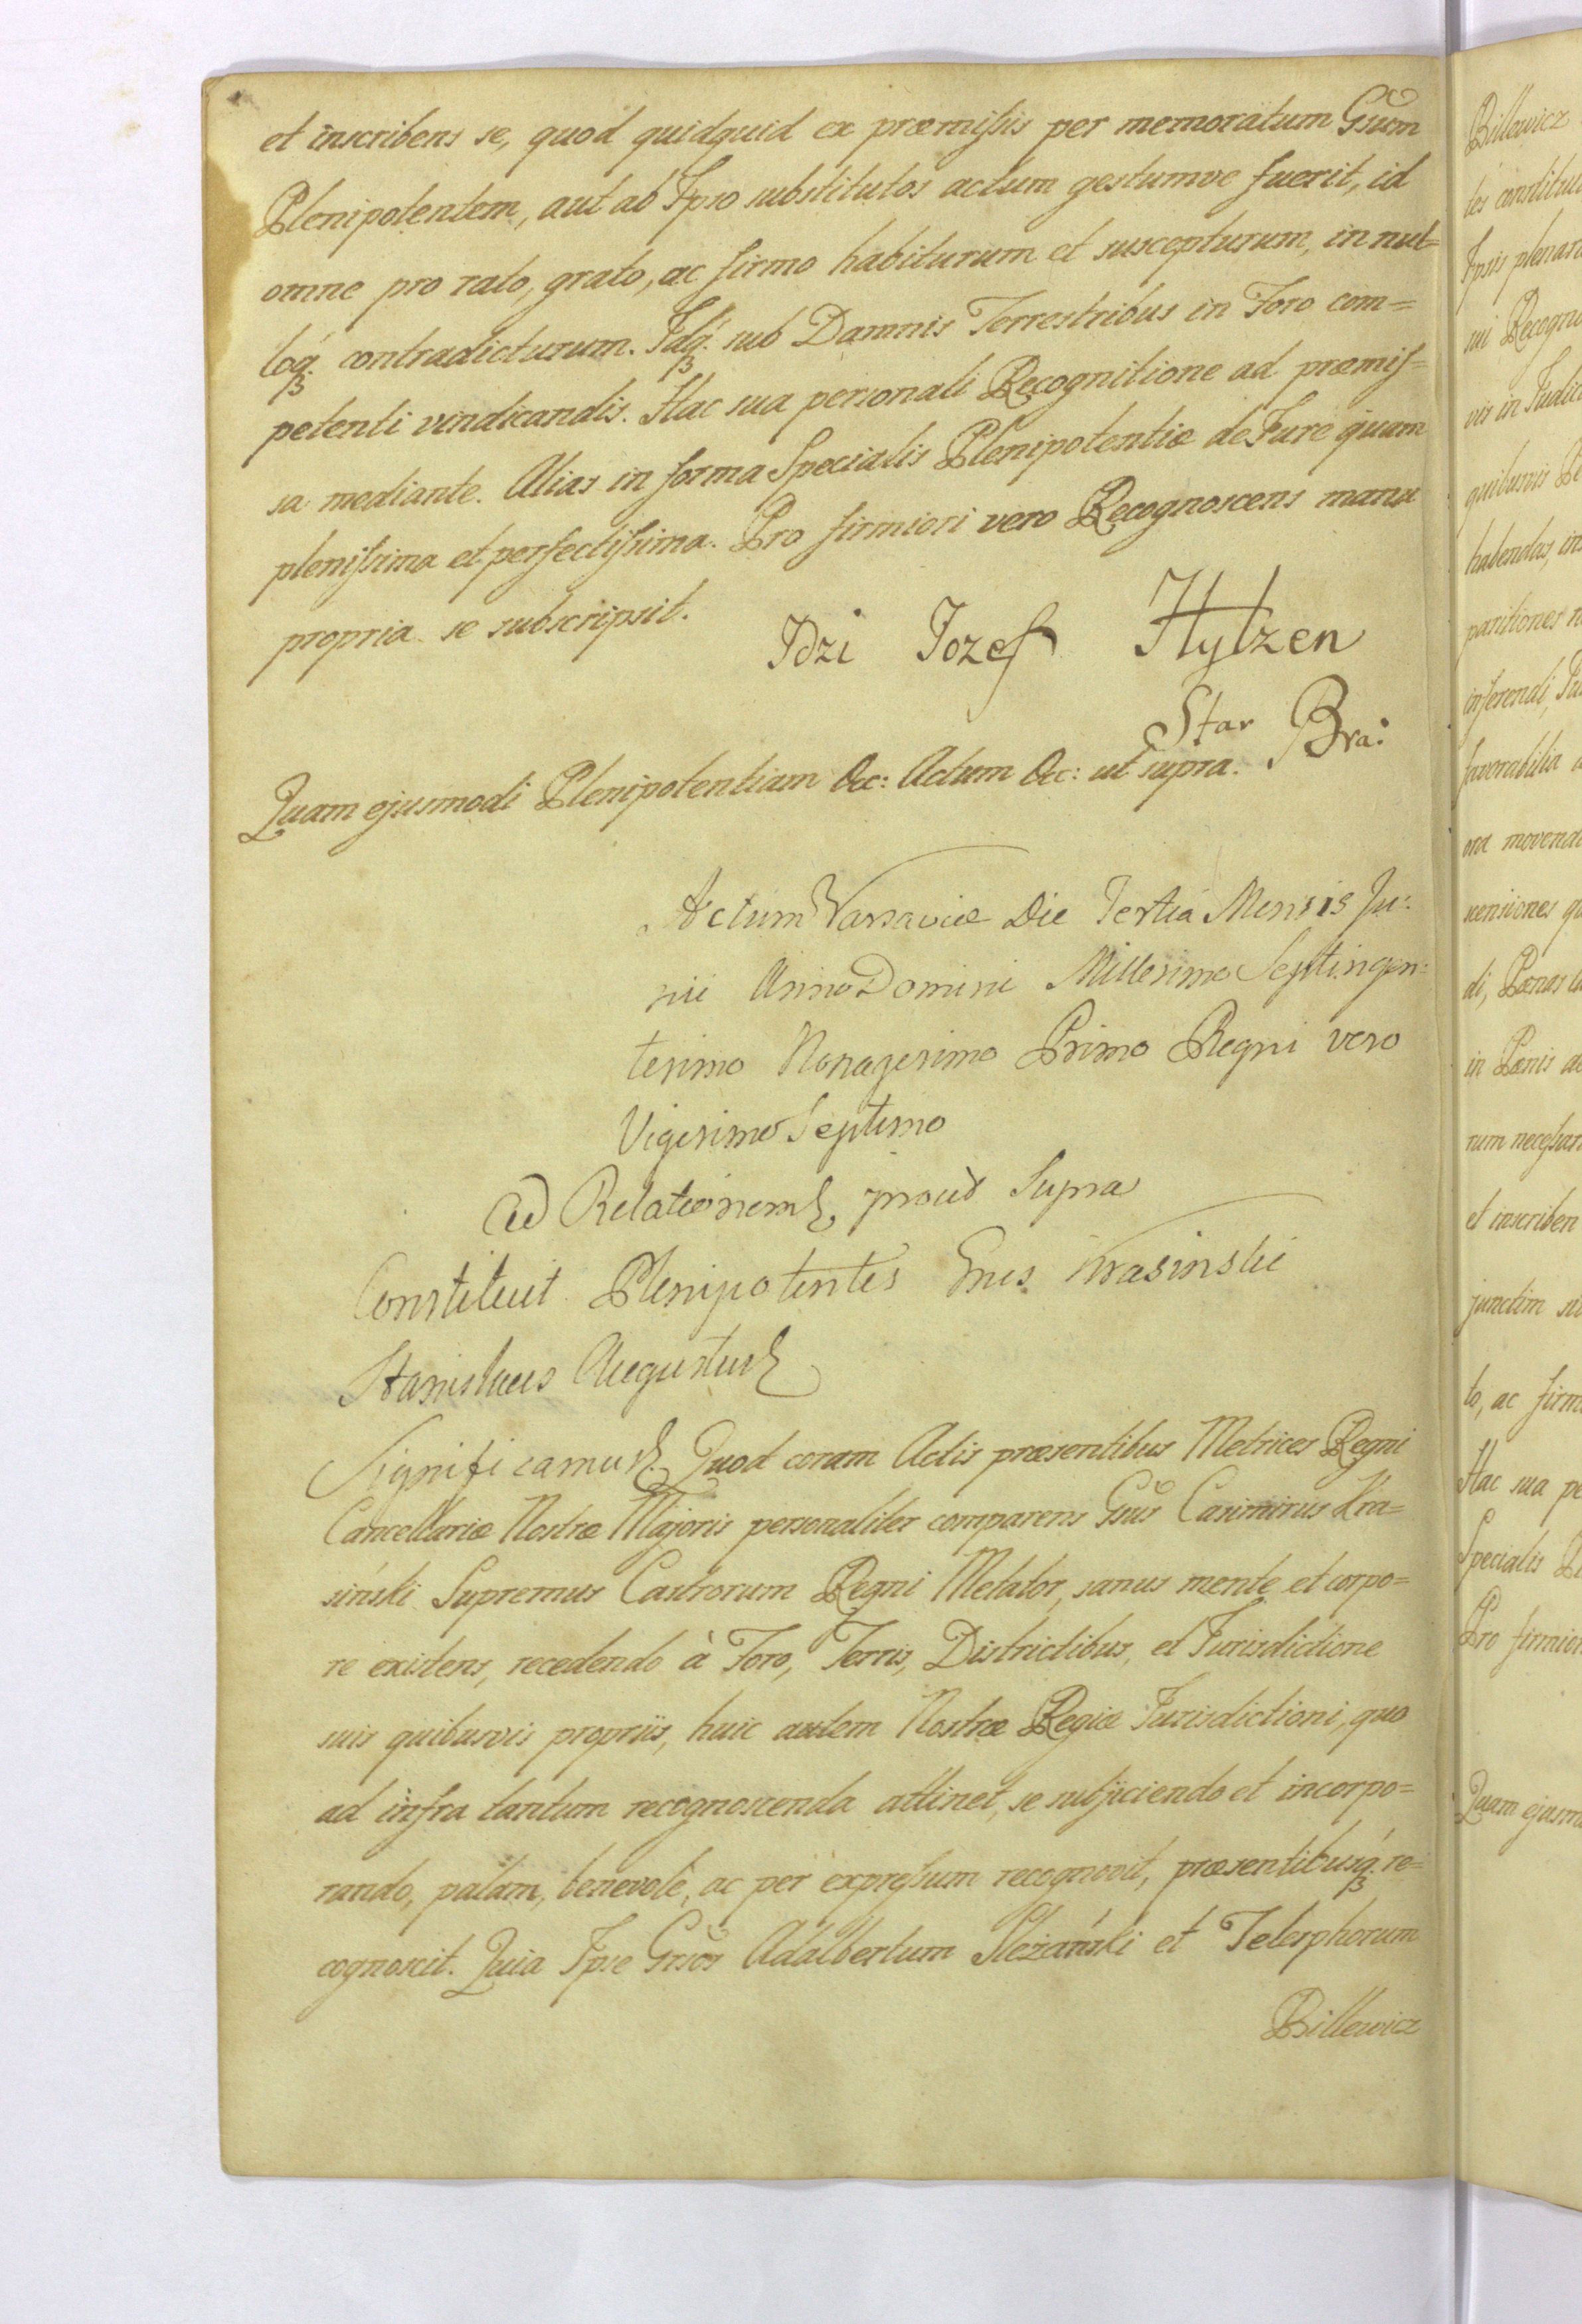 et inscribens se, quod quidquid ex præmissis per memoratum Gsum
Plenipotentem, aut ab Ipso substitutos actum gestumve fuerit, id
omne pro rato, grato, ac firmo habiturum et suscepturum, in nul=
loq́ꝫ contradicturum. Idq́ꝫ sub Damnis Terrestribus in Foro com=
petenti vindicandis. Hac sua personali Recognitione ad præmis=
sa mediante. Alias in forma Specialis Plenipotentiæ de Jure quam
plenissima et perfectissima. Pro firmiori vero Recognoscens manu
propria se subscripsit.
Idzi Iozef Hylzen
Star Bra:
Quam ejusmodi Plenipotentiam &c: Actum &c: ut supra.
Actum Varsaviæ Die Tertiá Mensis Ju:
nii Anno Domini Millesimo Septingen:
tesimo Nonagesimo Primo Regni vero
Vigesimo Septimo
Ad Relationem prout Supra
Constituit Plenipotentes Gnus Krasinski
Stanislaus Augustus
Significamus. Quod coram Actis præsentibus Metrices Regni
Cancellariæ Nostræ Majoris personaliter comparens Gsus Casimirus Kra=
siński Supremus Castrorum Regni Metator, sanus mente et corpo=
re existens, recedendo à Foro, Terris, Districtibus, et Jurisdictione
suis quibusvis propriis, huic autem Nostræ Regiæ Jurisdictioni, quo
ad infra tantum recognoscenda attinet, se subjiciendo et incorpo=
rando, palam, benevolè, ac per expressum recognovit, præsentibusq́ꝫ re=
cognoscit. Quia Ipse Gnsos Adalbertum Sleżański et Telesphorum
Billewicz
Billewicz
tes constitui
Ipsis plenari
sui Recogno
vis in Judici
quibusvis
habendas, in
paritiones
inferendi,
favorabilia
ora movenda
scensiones
di, Pænas
in Pænis
rum necessar
et inscriben
junctim
to, ac firm
Hac sua pe
Specialis
Pro firmior
Quam ejusm